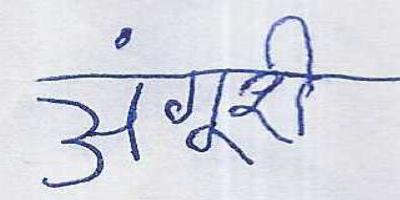 अंगूरी